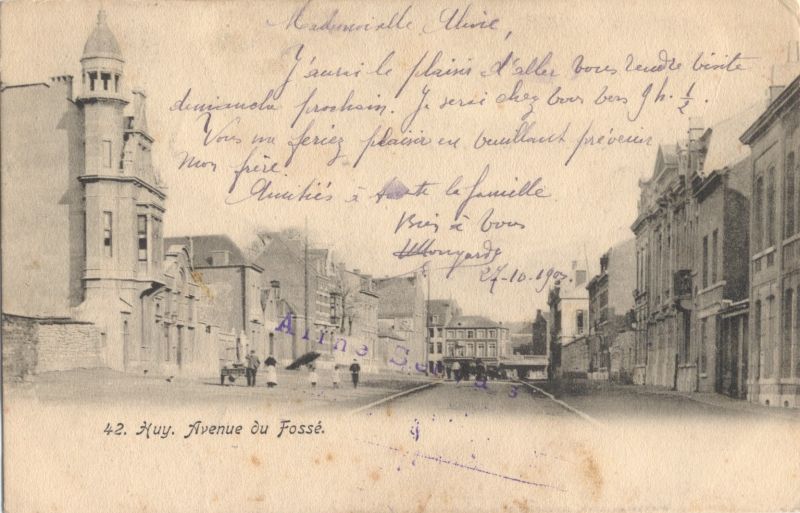 Mademoiselle
J'aurai le plaisir d'aller vous rendre visite
dimanche prochain. Je serai chez vous vers 9 h. 1/2.
Vous me feriez plaisir en veuillant prévenir
mon frère.
Amitiés à toute la famille
Bien à vous
27-10-190
Aline
42. Huy. Avenue du Fossé.